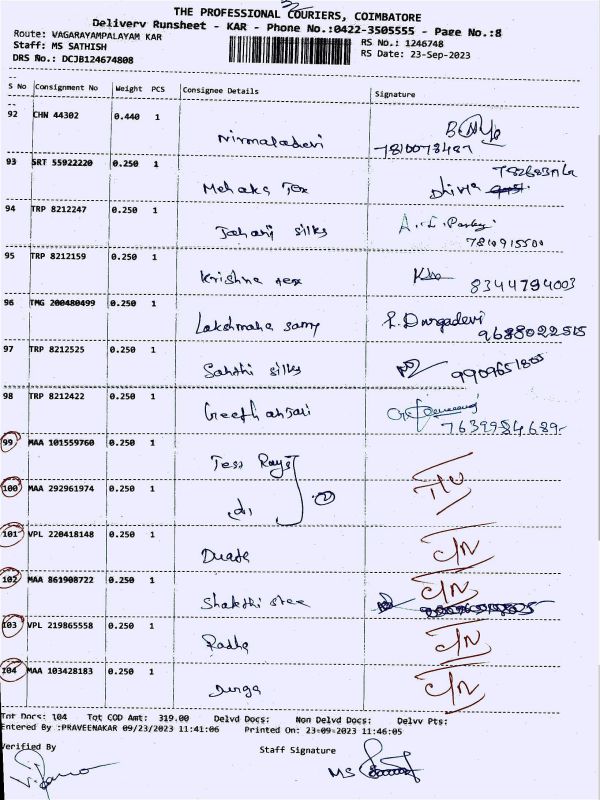 32
THE PROFESSIONAL COURIERS, COIMBATORE
Delivery Runsheet - KAR - Phone No.:0422-3505555 - Page No.:8
Route: VAGARAYAMPALAYAM KAR
RS No.: 1246748
Staff: MS SATHISH
RS Date: 23-Sep-2023
DRS No.: DCJB124674808
S No Consignment No Weight PCS Consignee Details Signature
92 CHN 44302 0.440 1
Nirmaladevi 7810073487
93 SRT 55922220 0.250 1
Mehaka Tex
94 TRP 8212247 0.250 1
silks 7810915500
95 TRP 8212159 0.250 1
Krishna Tex 8344794003
96 TMG 200480499 0.250 1
Lakshmana samy L. Durgadevi
9688022515
97 TRP 8212525 0.250 1
Sakthi silks
98 TRP 8212422 0.250 1
Geethanjari 7639984689
99 MAA 101559760 0.250 1
Tess
100 MAA 292961974 0.250 1
2
101 VPL 220418148 0.250 1
102 MAA 861908722 0.250 1
Shakthi stee
103 VPL 219865558 0.250 1
Radha
104 MAA 103428183 0.250 1
Durga
Tot Docs: 104 Tot COD Amt: 319.00 Delvd Docs: Non Delvd Docs: Delvv Pts:
Entered By :PRAVEENAKAR 09/23/2023 11:41:06 Printed On: 23-09-2023 11:46:05
Verified By Staff Signature
MS